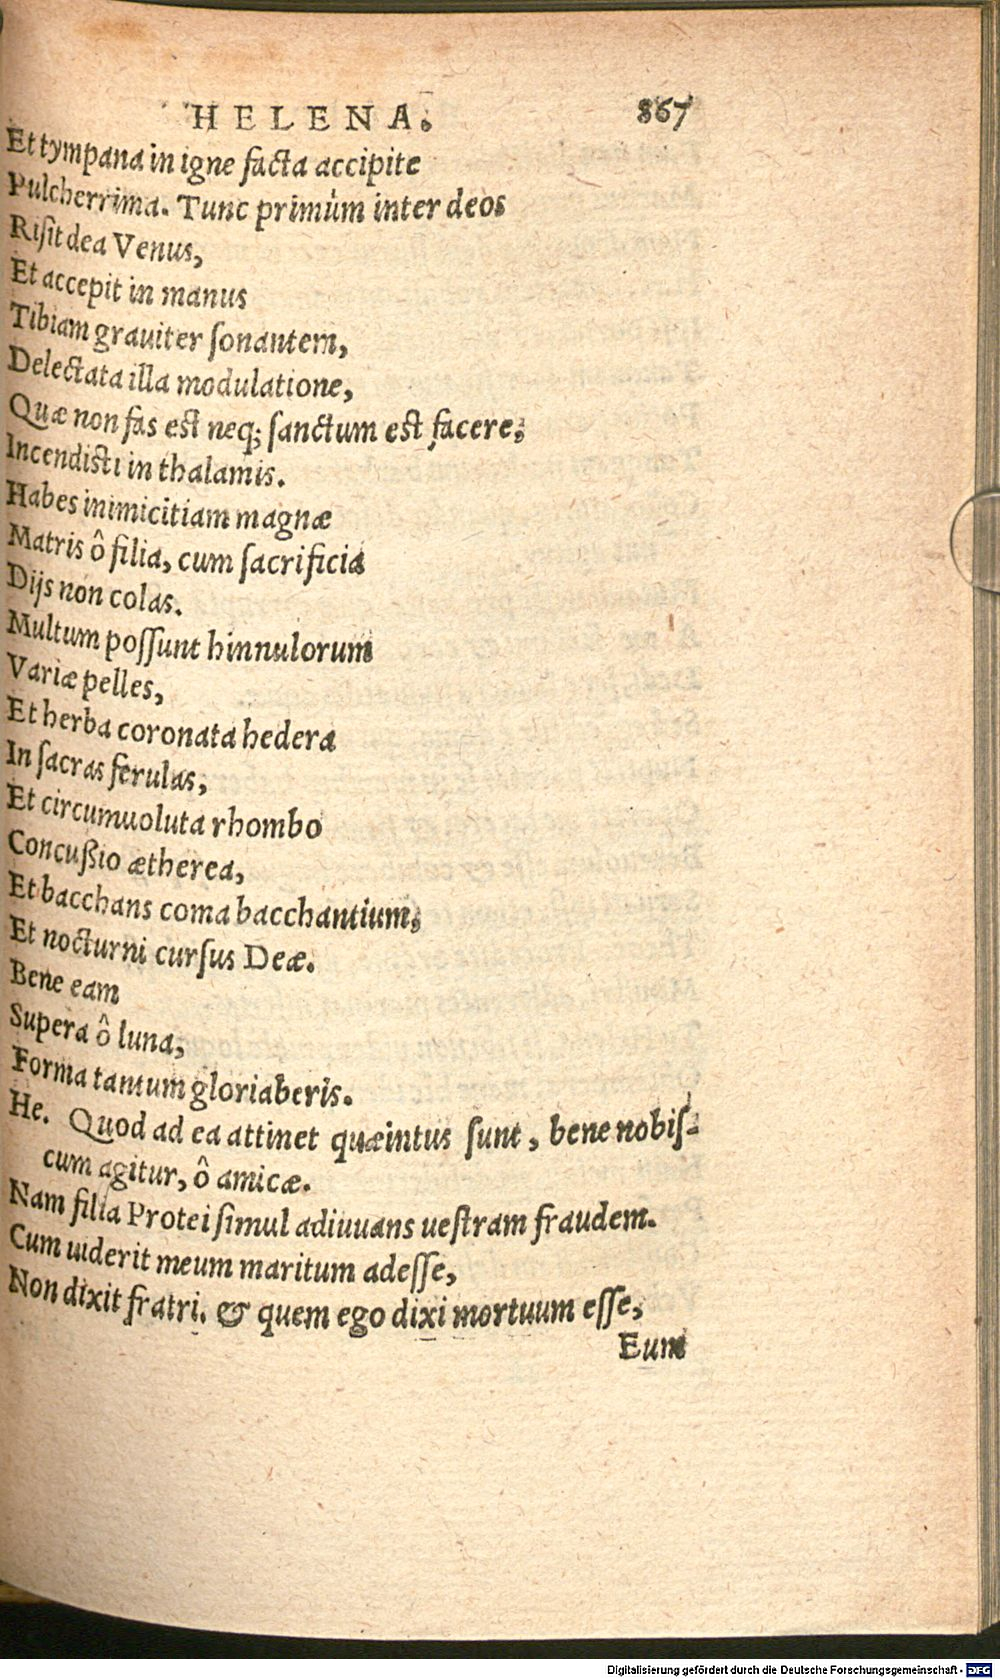 HELENA. 867
Et tympana in igne facta accipite
Pulcherrima. Tunc primùm inter deos
Risit dea Venus,
Et accepit in manus
Tibiam grauiter sonantem,
Delectata illa modulatione,
Quæ non fas est neq; sanctum est facere;
Incendisti in thalamis.
Habes inimicitiam magnæ
Matris ô filia, cum sacrificia
Dijs non colas.
Multum possunt hinnulorum
Variæ pelles,
Et herba coronata hedera
In sacras ferulas,
Et circumuoluta rhombo
Concußio ætherea,
Et bacchans coma bacchantium;
Et nocturni cursus Deæ.
Bene eam
Supera ô luna;
Forma tantum gloriaberis.
He. Quod ad ea attinet quæ intus sunt, bene nobis-
cum agitur, ô amicæ.
Nam filia Protei simul adiuuans uestram fraudem.
Cum uiderit meum maritum adesse,
Non dixit fratri. & quem ego dixi mortuum esse,
Eum
Digitalisierung gefördert durch die Deutsche Forschungsgemeinschaft - DFG